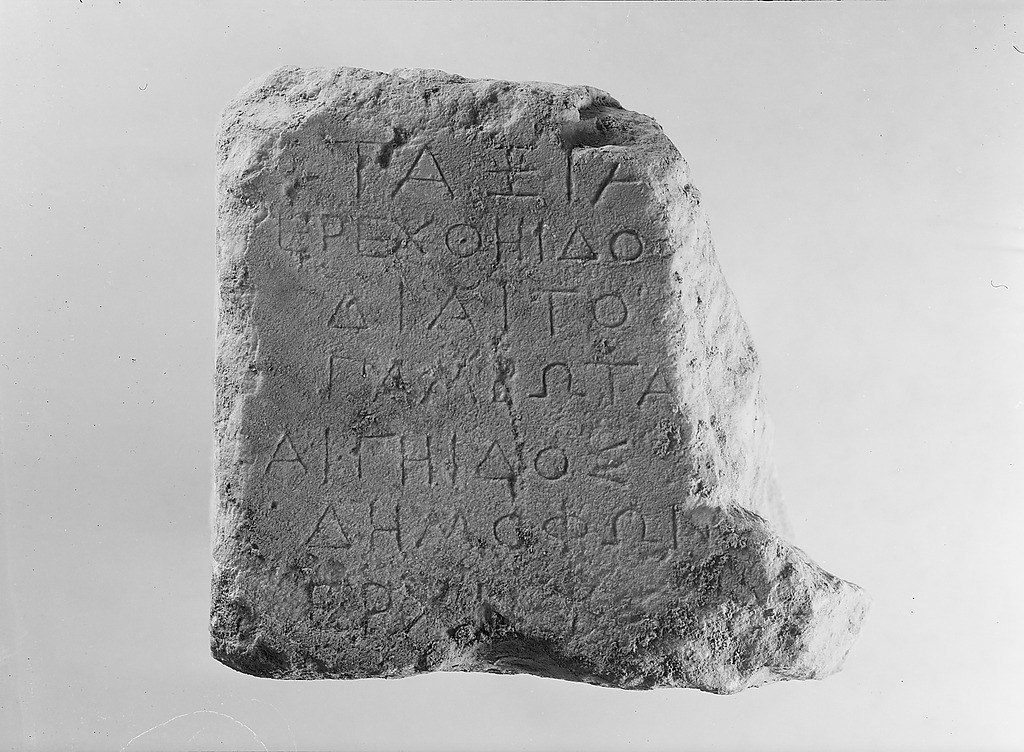 ΤΑΞΙΑ
ΕΡΕΧΘΗΙΔΟ
ΔΙΑΙΤΟ
ΠΑΜΒΩΤΑ
ΑΙΓΗΙΔΟΣ
ΔΗΜΟΦΩΝ
ΕΡΧΙ